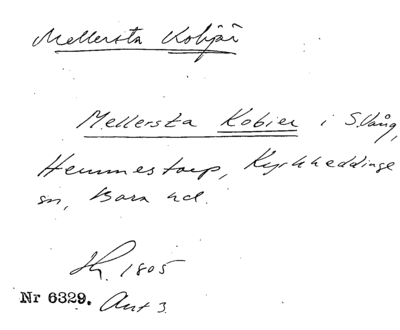 Mellersta Kobjär
Mellersta Kobier i S. Vång,
Hemmestorp, Kyrkheddinge
sn, Bara hd.
1805
Nr 6329. Akt 3.